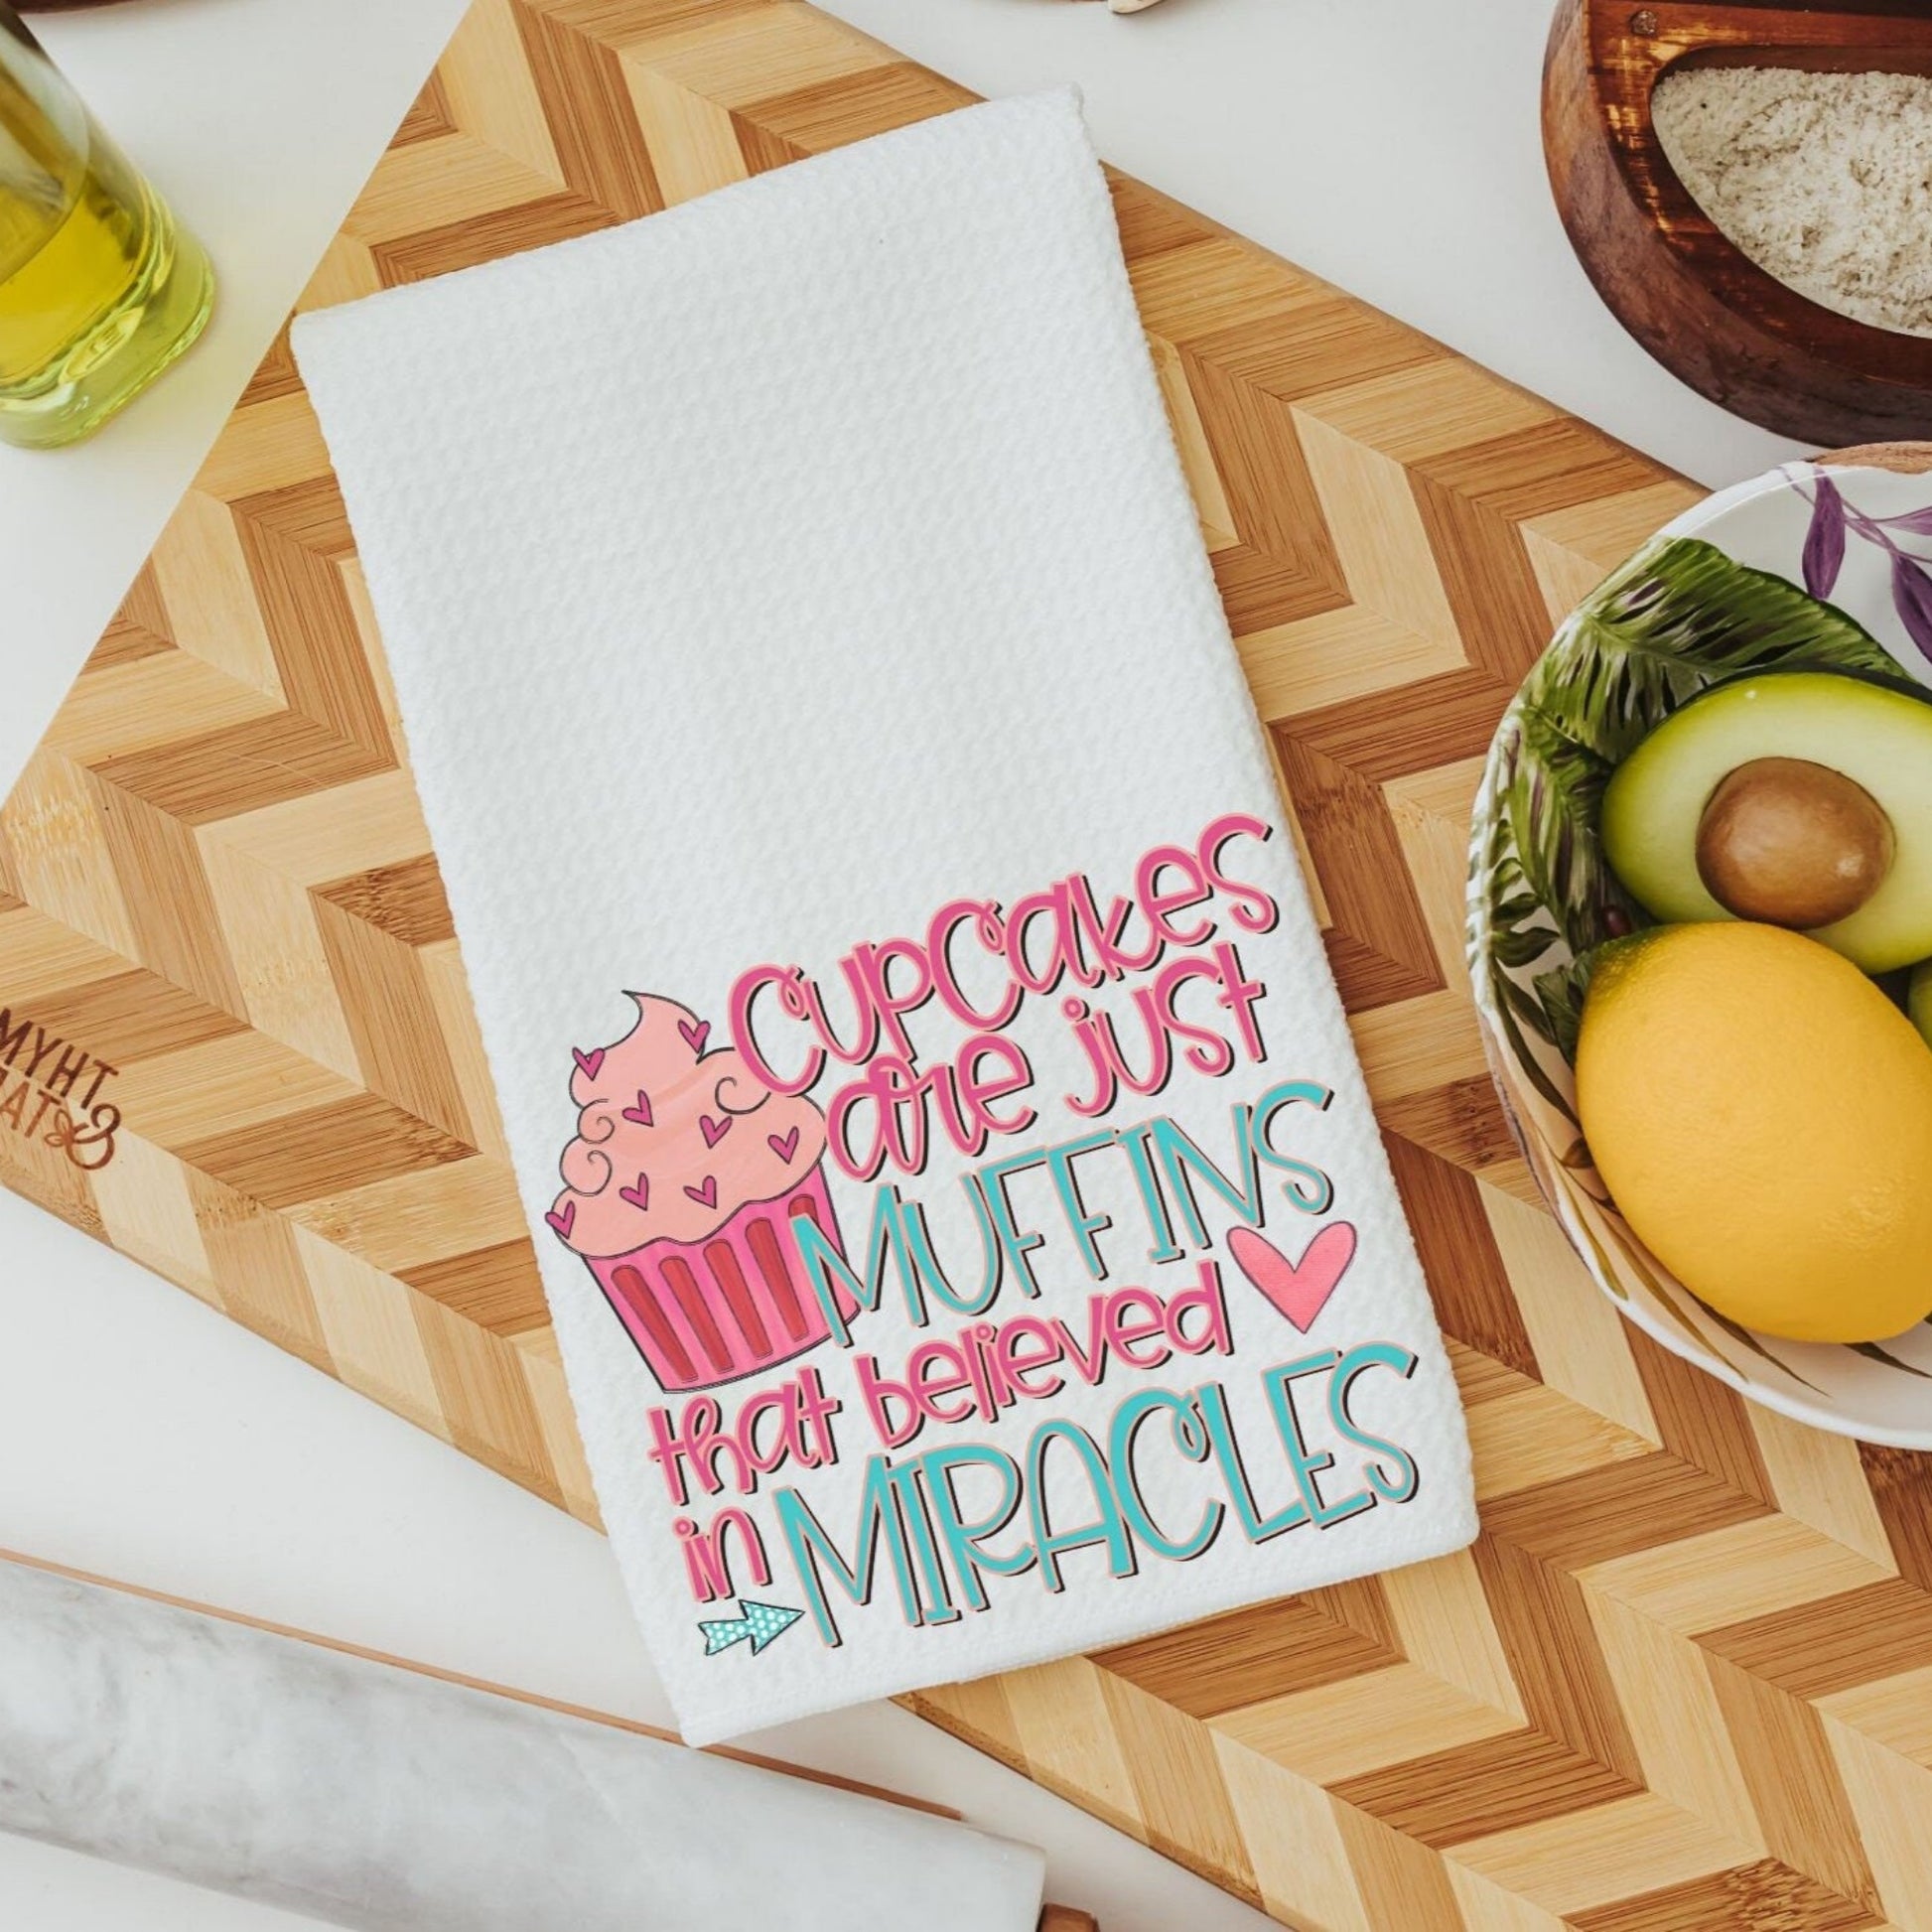 cupcakes
are just
MUFFINS
that believed
in MIRACLES
MYHT